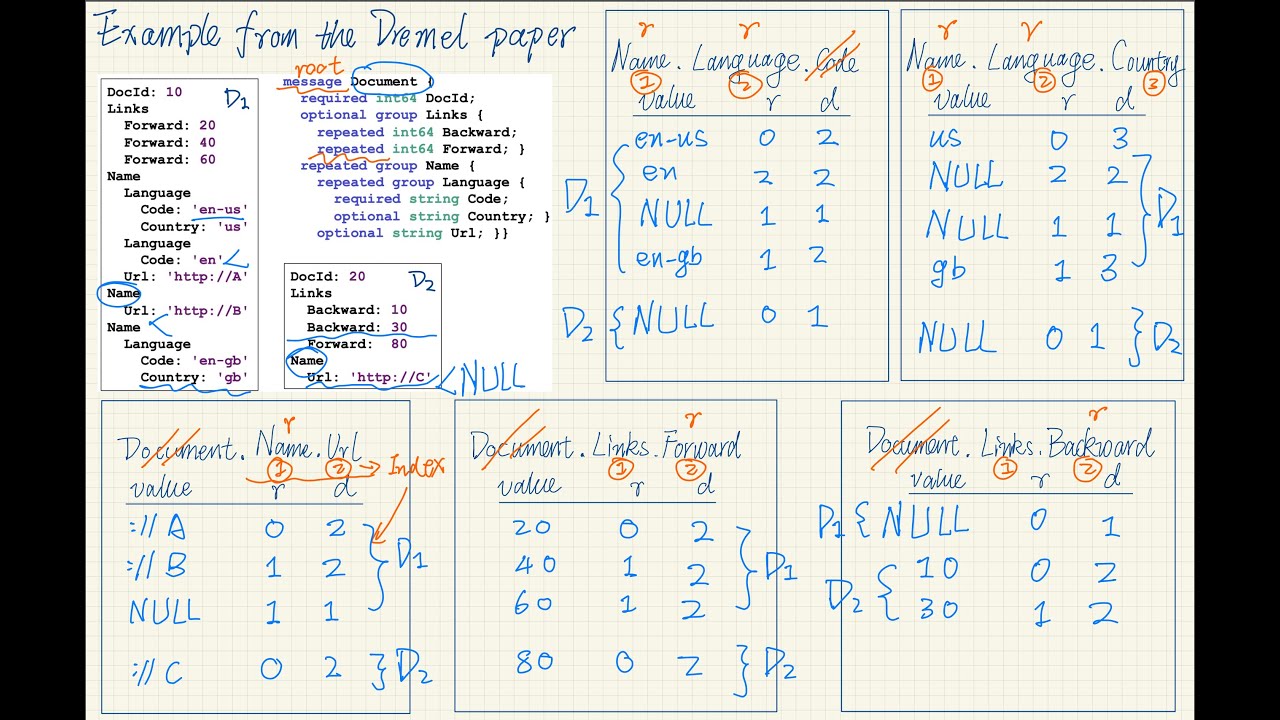 Example from the Dremel paper
DocId: 10
D1
Links
Forward: 20
Forward: 40
Forward: 60
Name
Language
Code: 'en-us'
Country: 'us'
Language
Code: 'en'
Url: 'http://A'
Name
Url: 'http://B'
Name
Language
Code: 'en-gb'
Country: 'gb'
root
message Document {
required int64 DocId;
optional group Links {
repeated int64 Backward;
repeated int64 Forward; }
repeated group Name {
repeated group Language {
required string Code;
optional string Country; }
optional string Url; }}
DocId: 20
D2
Links
Backward: 10
Backward: 30
Forward: 80
Name
Url: 'http://C'
NULL
r r
Name. Language. Code
1 2
value r d
en-us 0 2
en 2 2
NULL 1 1
en-gb 1 2
D1
D2 { NULL 0 1
r r
Name. Language. Country
1 2 3
value r d
us 0 3
NULL 2 2
NULL 1 1
gb 1 3
D1
NULL 0 1 } D2
r
Document. Name. Url
1 2 → Index
value r d
://A 0 2
://B 1 2
NULL 1 1
D1
://C 0 2 } D2
r
Document. Links. Forward
1 2
value r d
20 0 2
40 1 2
60 1 2
D1
80 0 2 } D2
r
Document. Links. Backward
1 2
value r d
D1 { NULL 0 1
10 0 2
30 1 2
D2 {